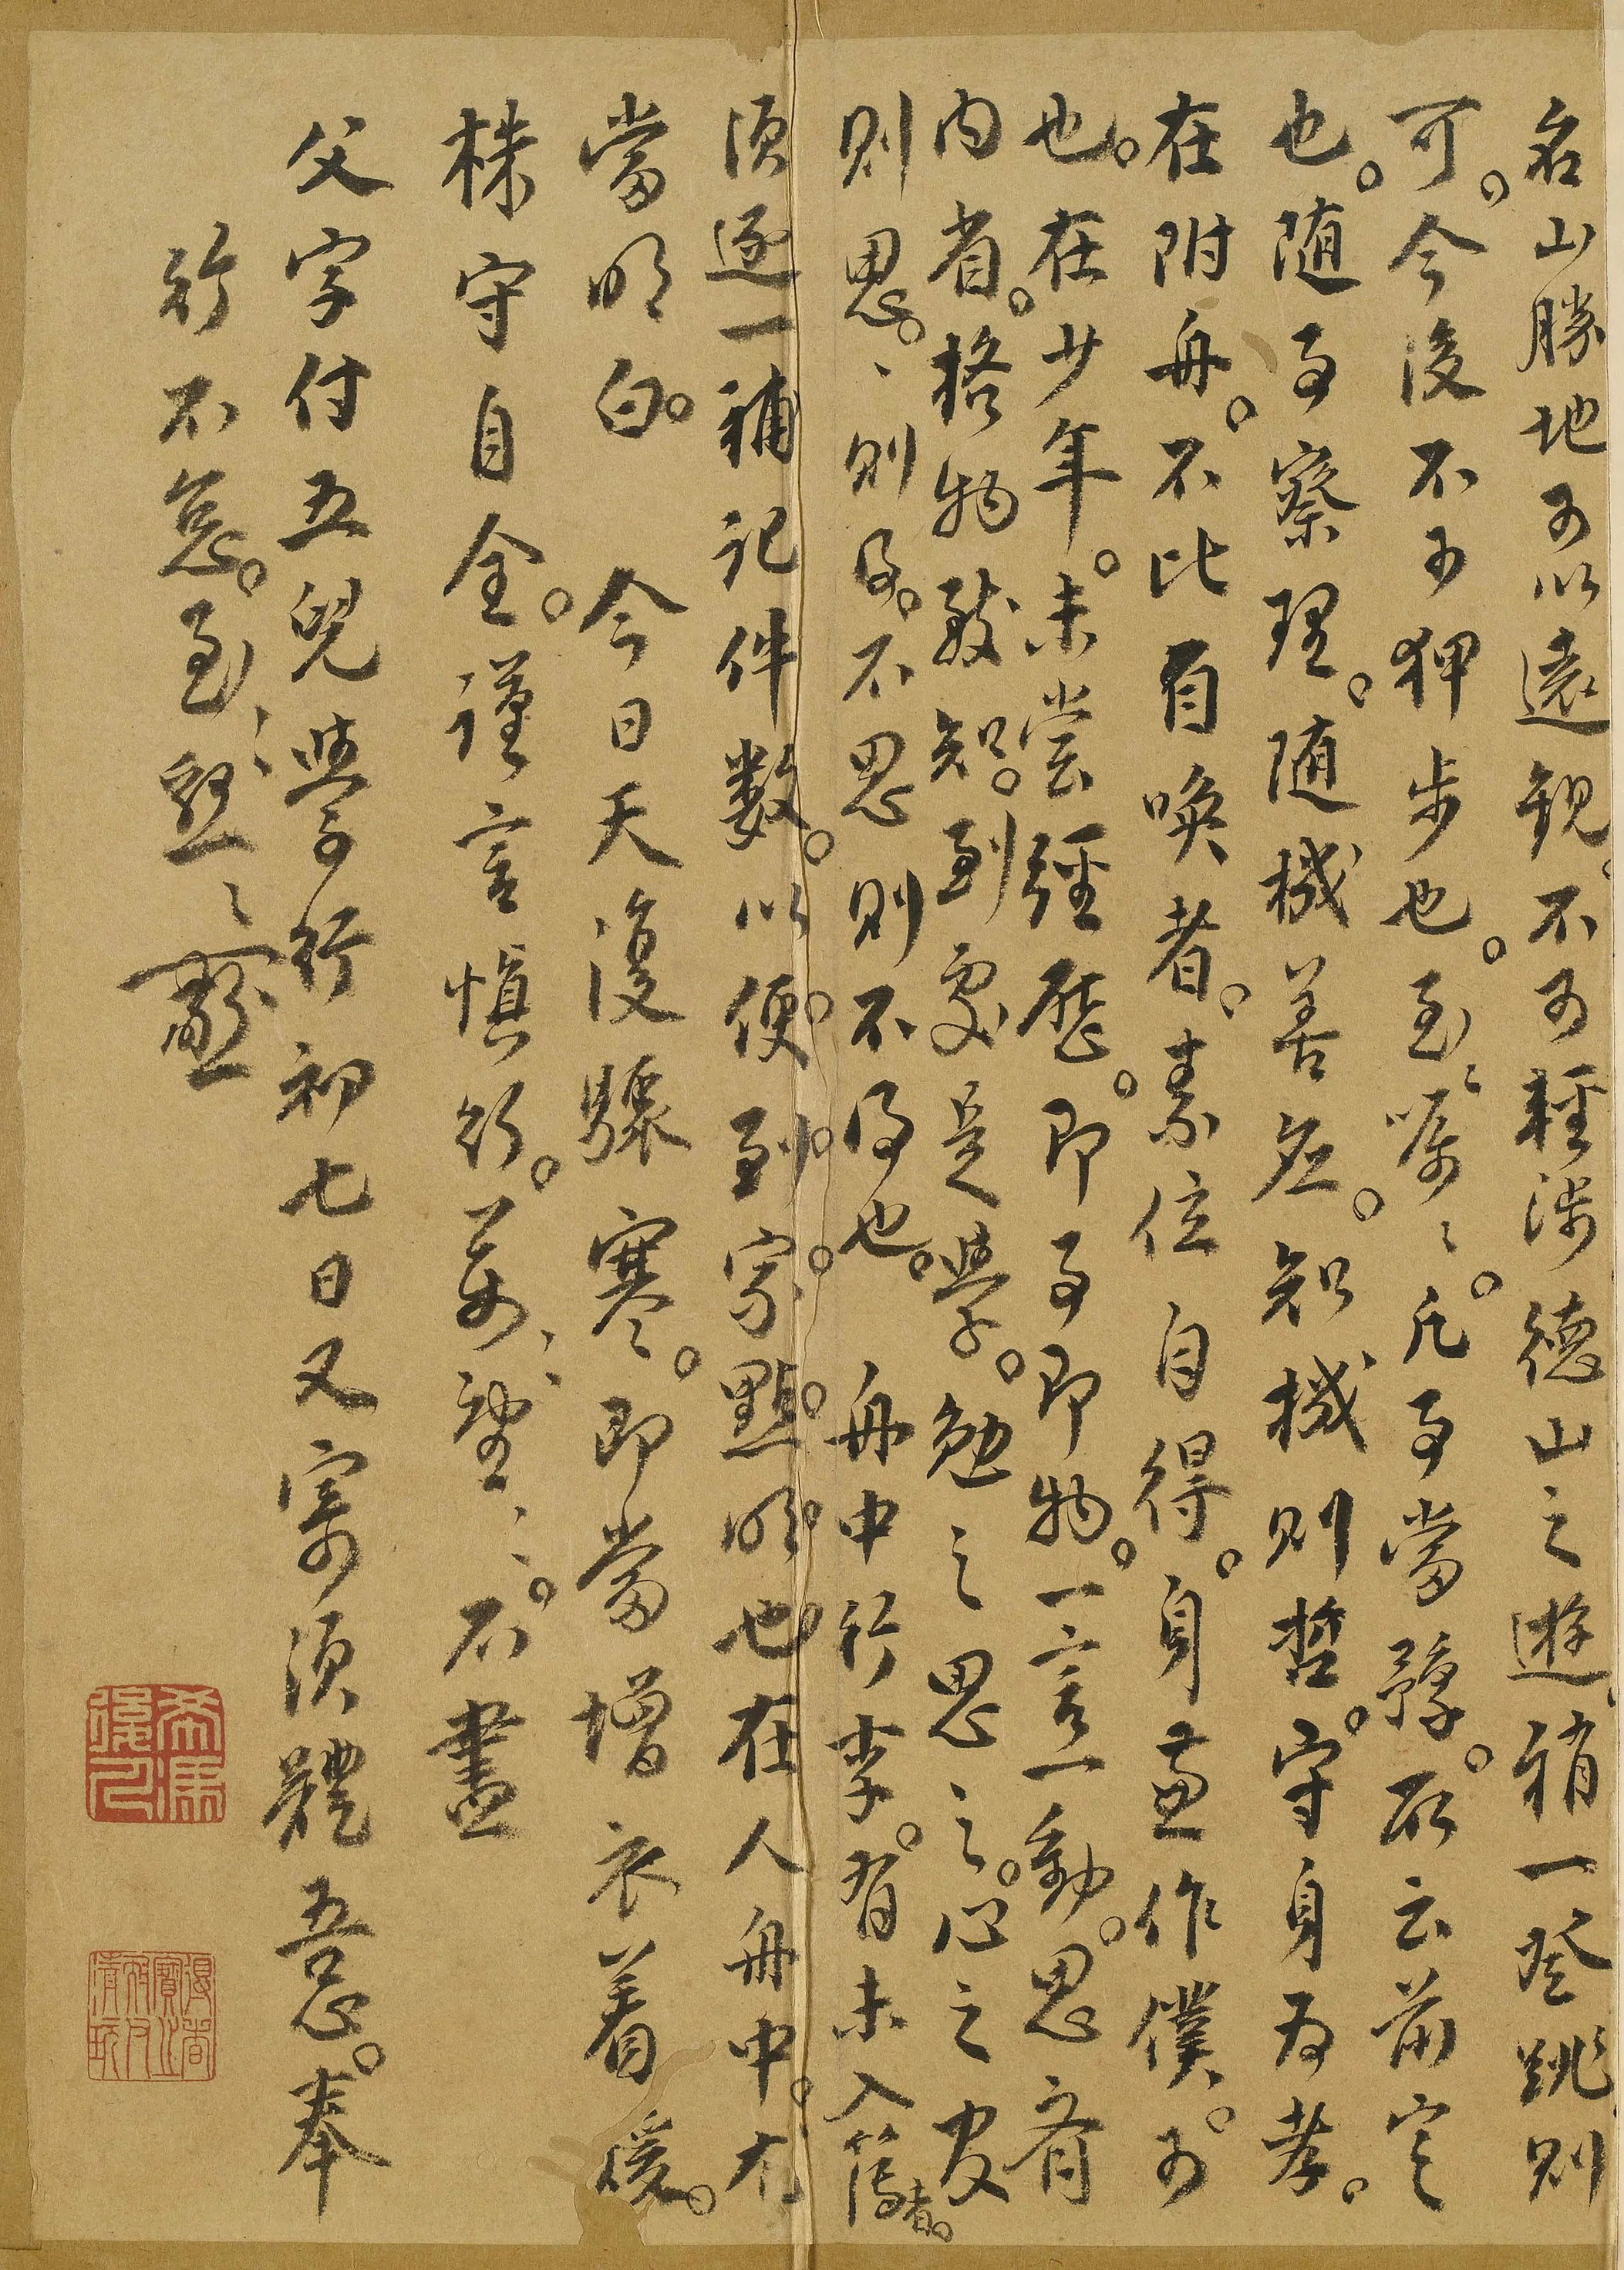 名山勝地可以遠觀。不可輕涉德山之遊。稍一登跳。則
可。今後不可狎步也。至〻囑〻。凡事當豫。所云前定
也。随事察理。随機善應。知機則哲。守身為孝。
在附舟。不比自喚者。素位自得。身兼作僕。可
也。在少年。未嘗經歷。即事即物。一言一動。思齊
內省。格物致知。到處是學。勉之思之。心之官
則思。〻則得。不思則不得也。舟中行李。有未入簿者。
須逐一補記件數。以便到家點明也在人舟中。尤
當明白。今日天復驟寒。即當增衣着暖。
株守自全。謹言慎行。萬〻望〻。不盡
父字付五兒學行初七日又寄須體吾心。奉
行不怠。至〻懇〻